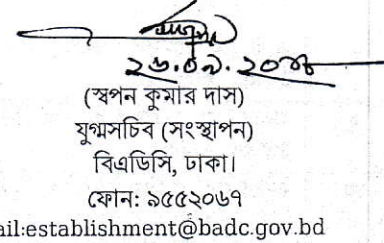 (স্বপন কুমার দাস)
যুগ্মসচিব (সংস্থাপন)
বিএডিসি, ঢাকা।
ফোন: ৯৫৫২০৬৭
ail:establishment@badc.gov.bd